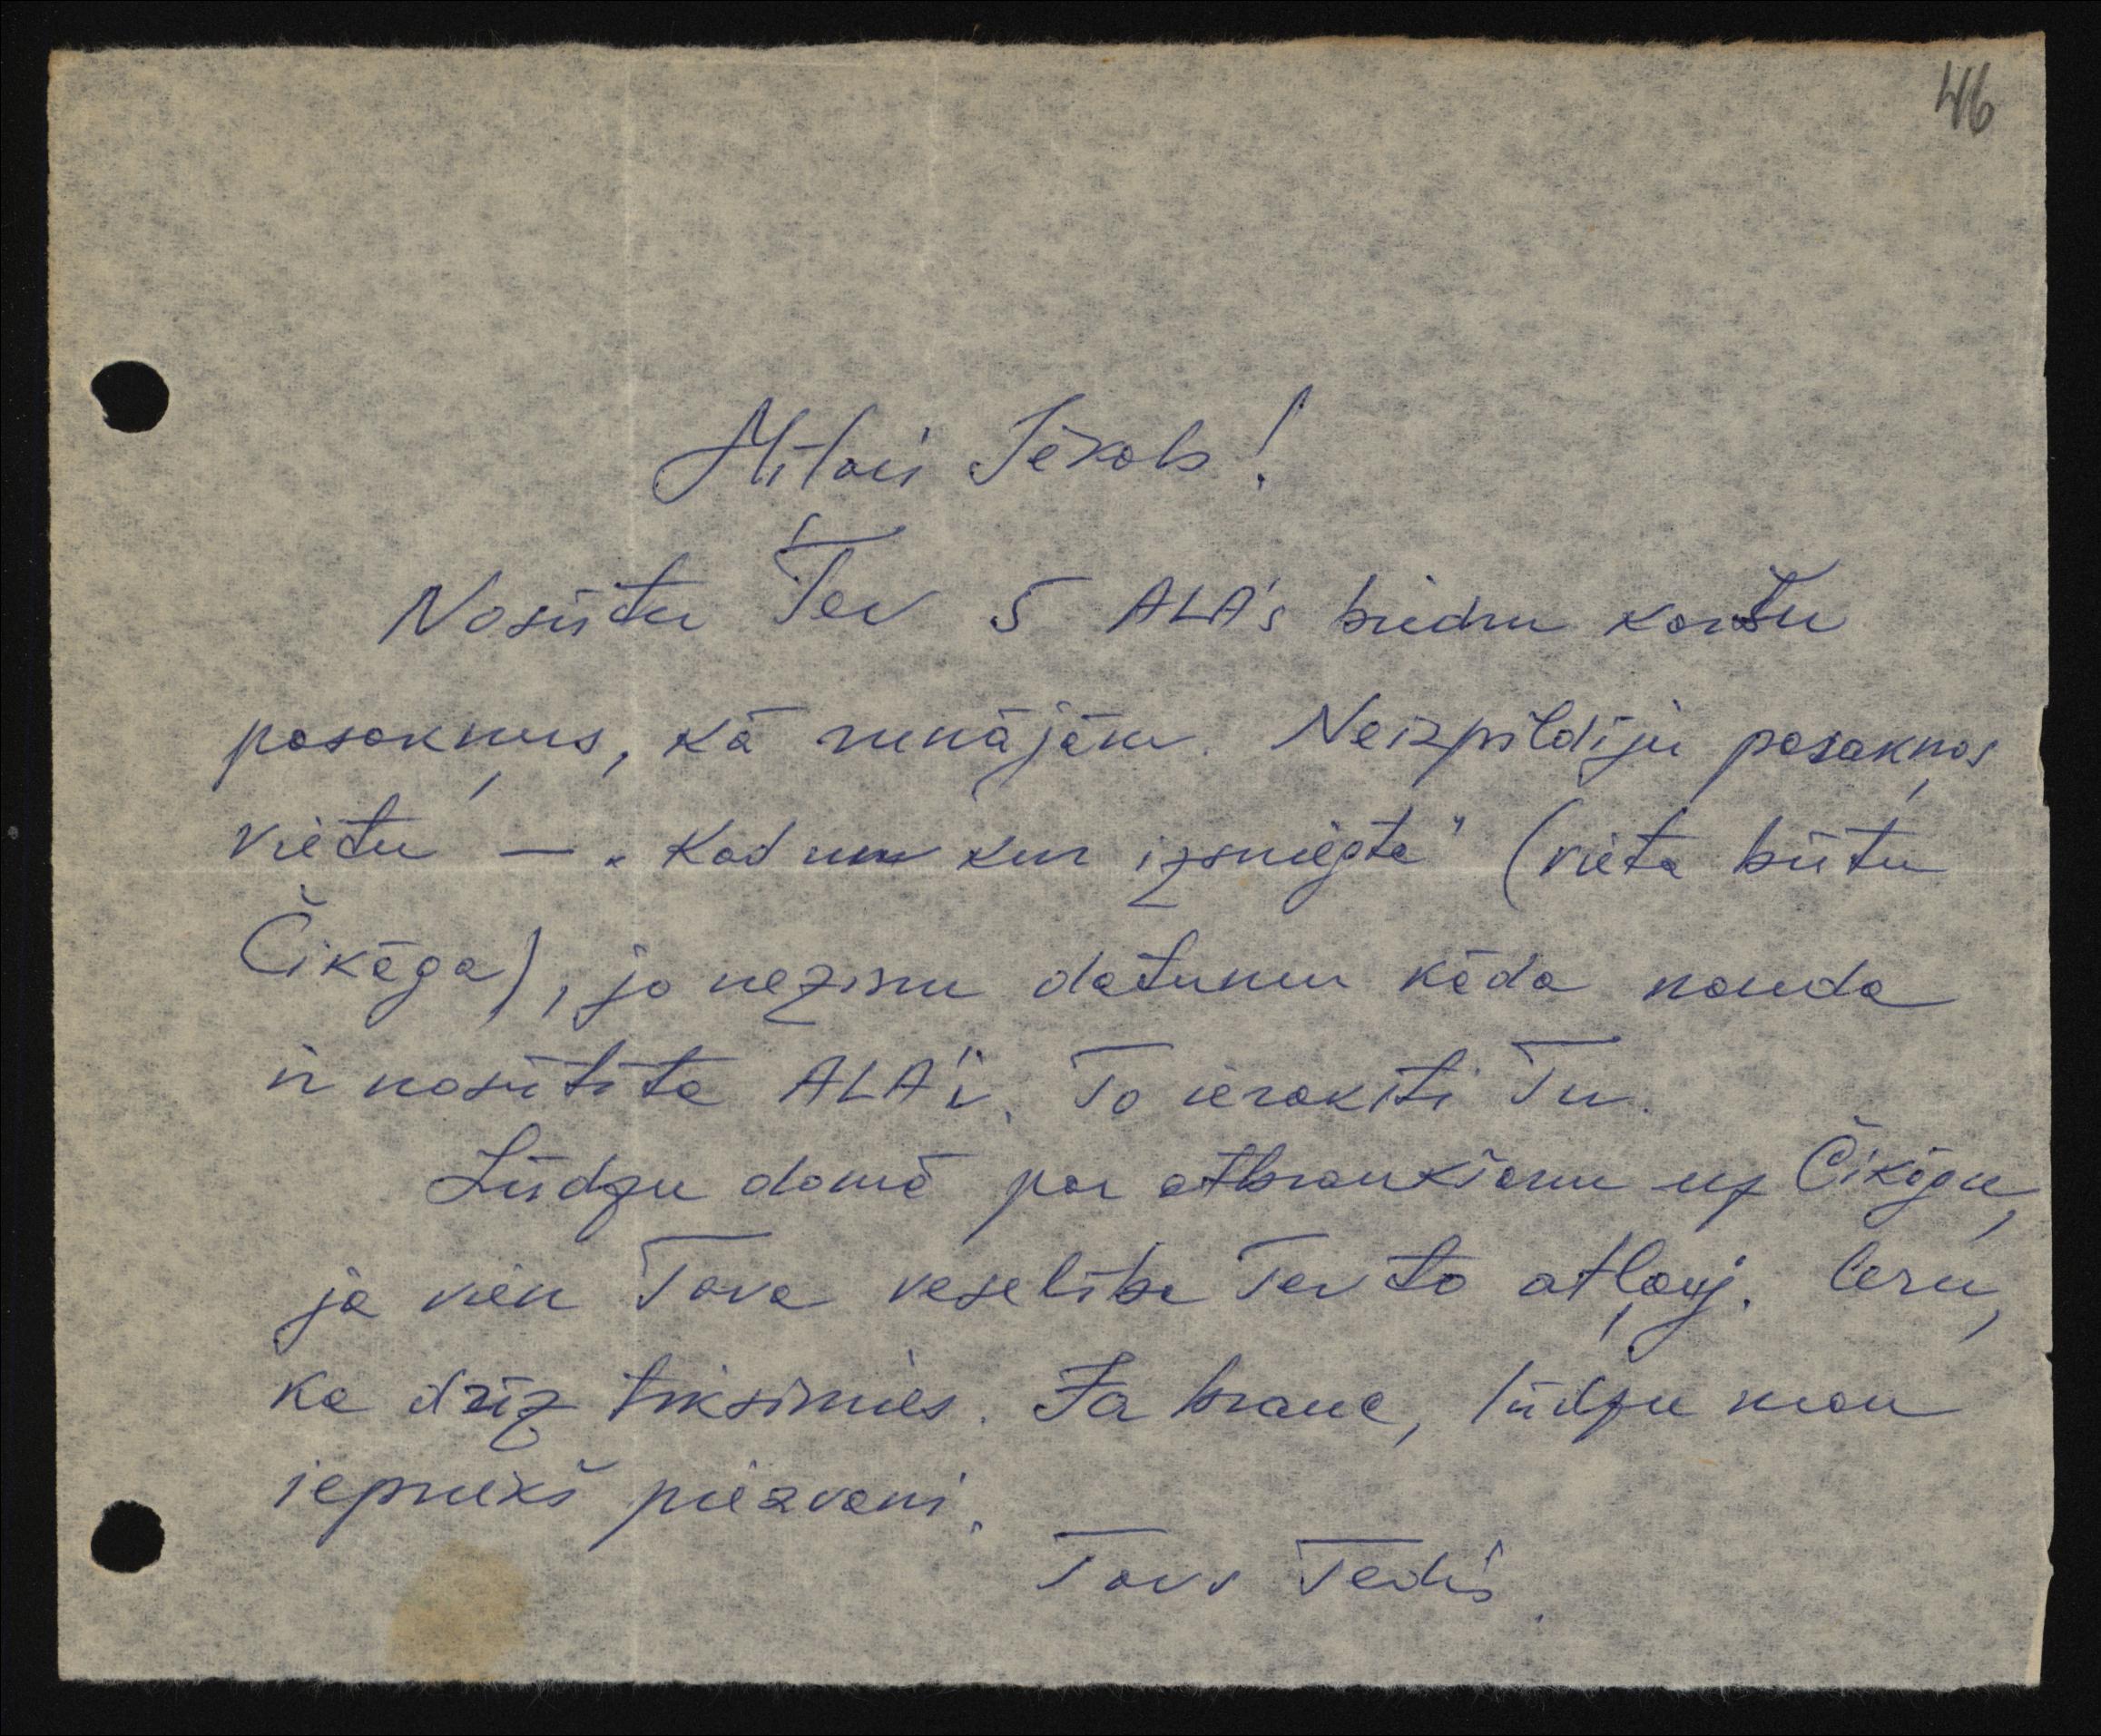 46
Mīļais Jēkab!
Nosūtu Tev 5 ALA's biedru karšu
pasakņus, kā runājām. Neizpildīju pasakņos
vietu – „Kad un kur izsniegta" (vieta būtu
Čikāga), jo nezinu datumu kāda nauda
ir nosūtīta ALA'i. To ierakstī Tu.
Lūdzu domā par atbraukšanu uz Čikāgu,
ja vien Tava veselība Tev to atļauj. Ceru,
ka drīz tiksimies. Ja brauc, lūdzu man
iepriekš piezvani.
Tavs Tedis.